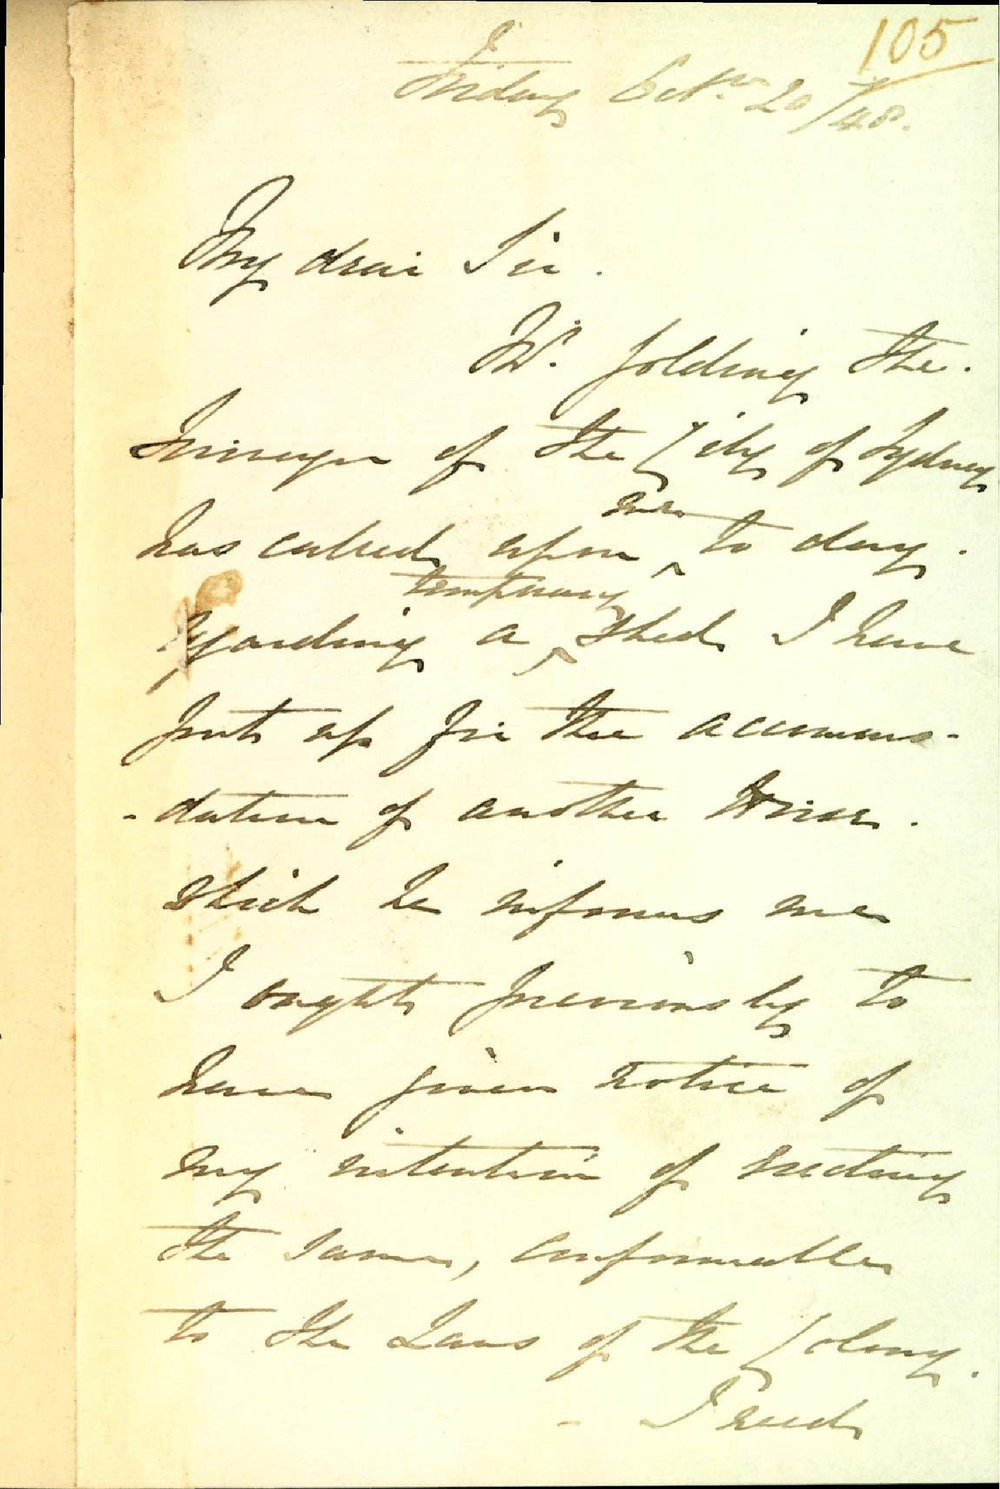 105
Friday Octr. 20/48.
My dear Sir.
Mr. Golding the.
Surveyor of the City of Sydney
has called upon me to day.
regarding a temporary shed I have
put up for the accommo-
-dation of another Horse.
which he informs me
I ought previously to
have given notice of
my intention of erecting
the same, conformable
to the Laws of the Colony.
- I need